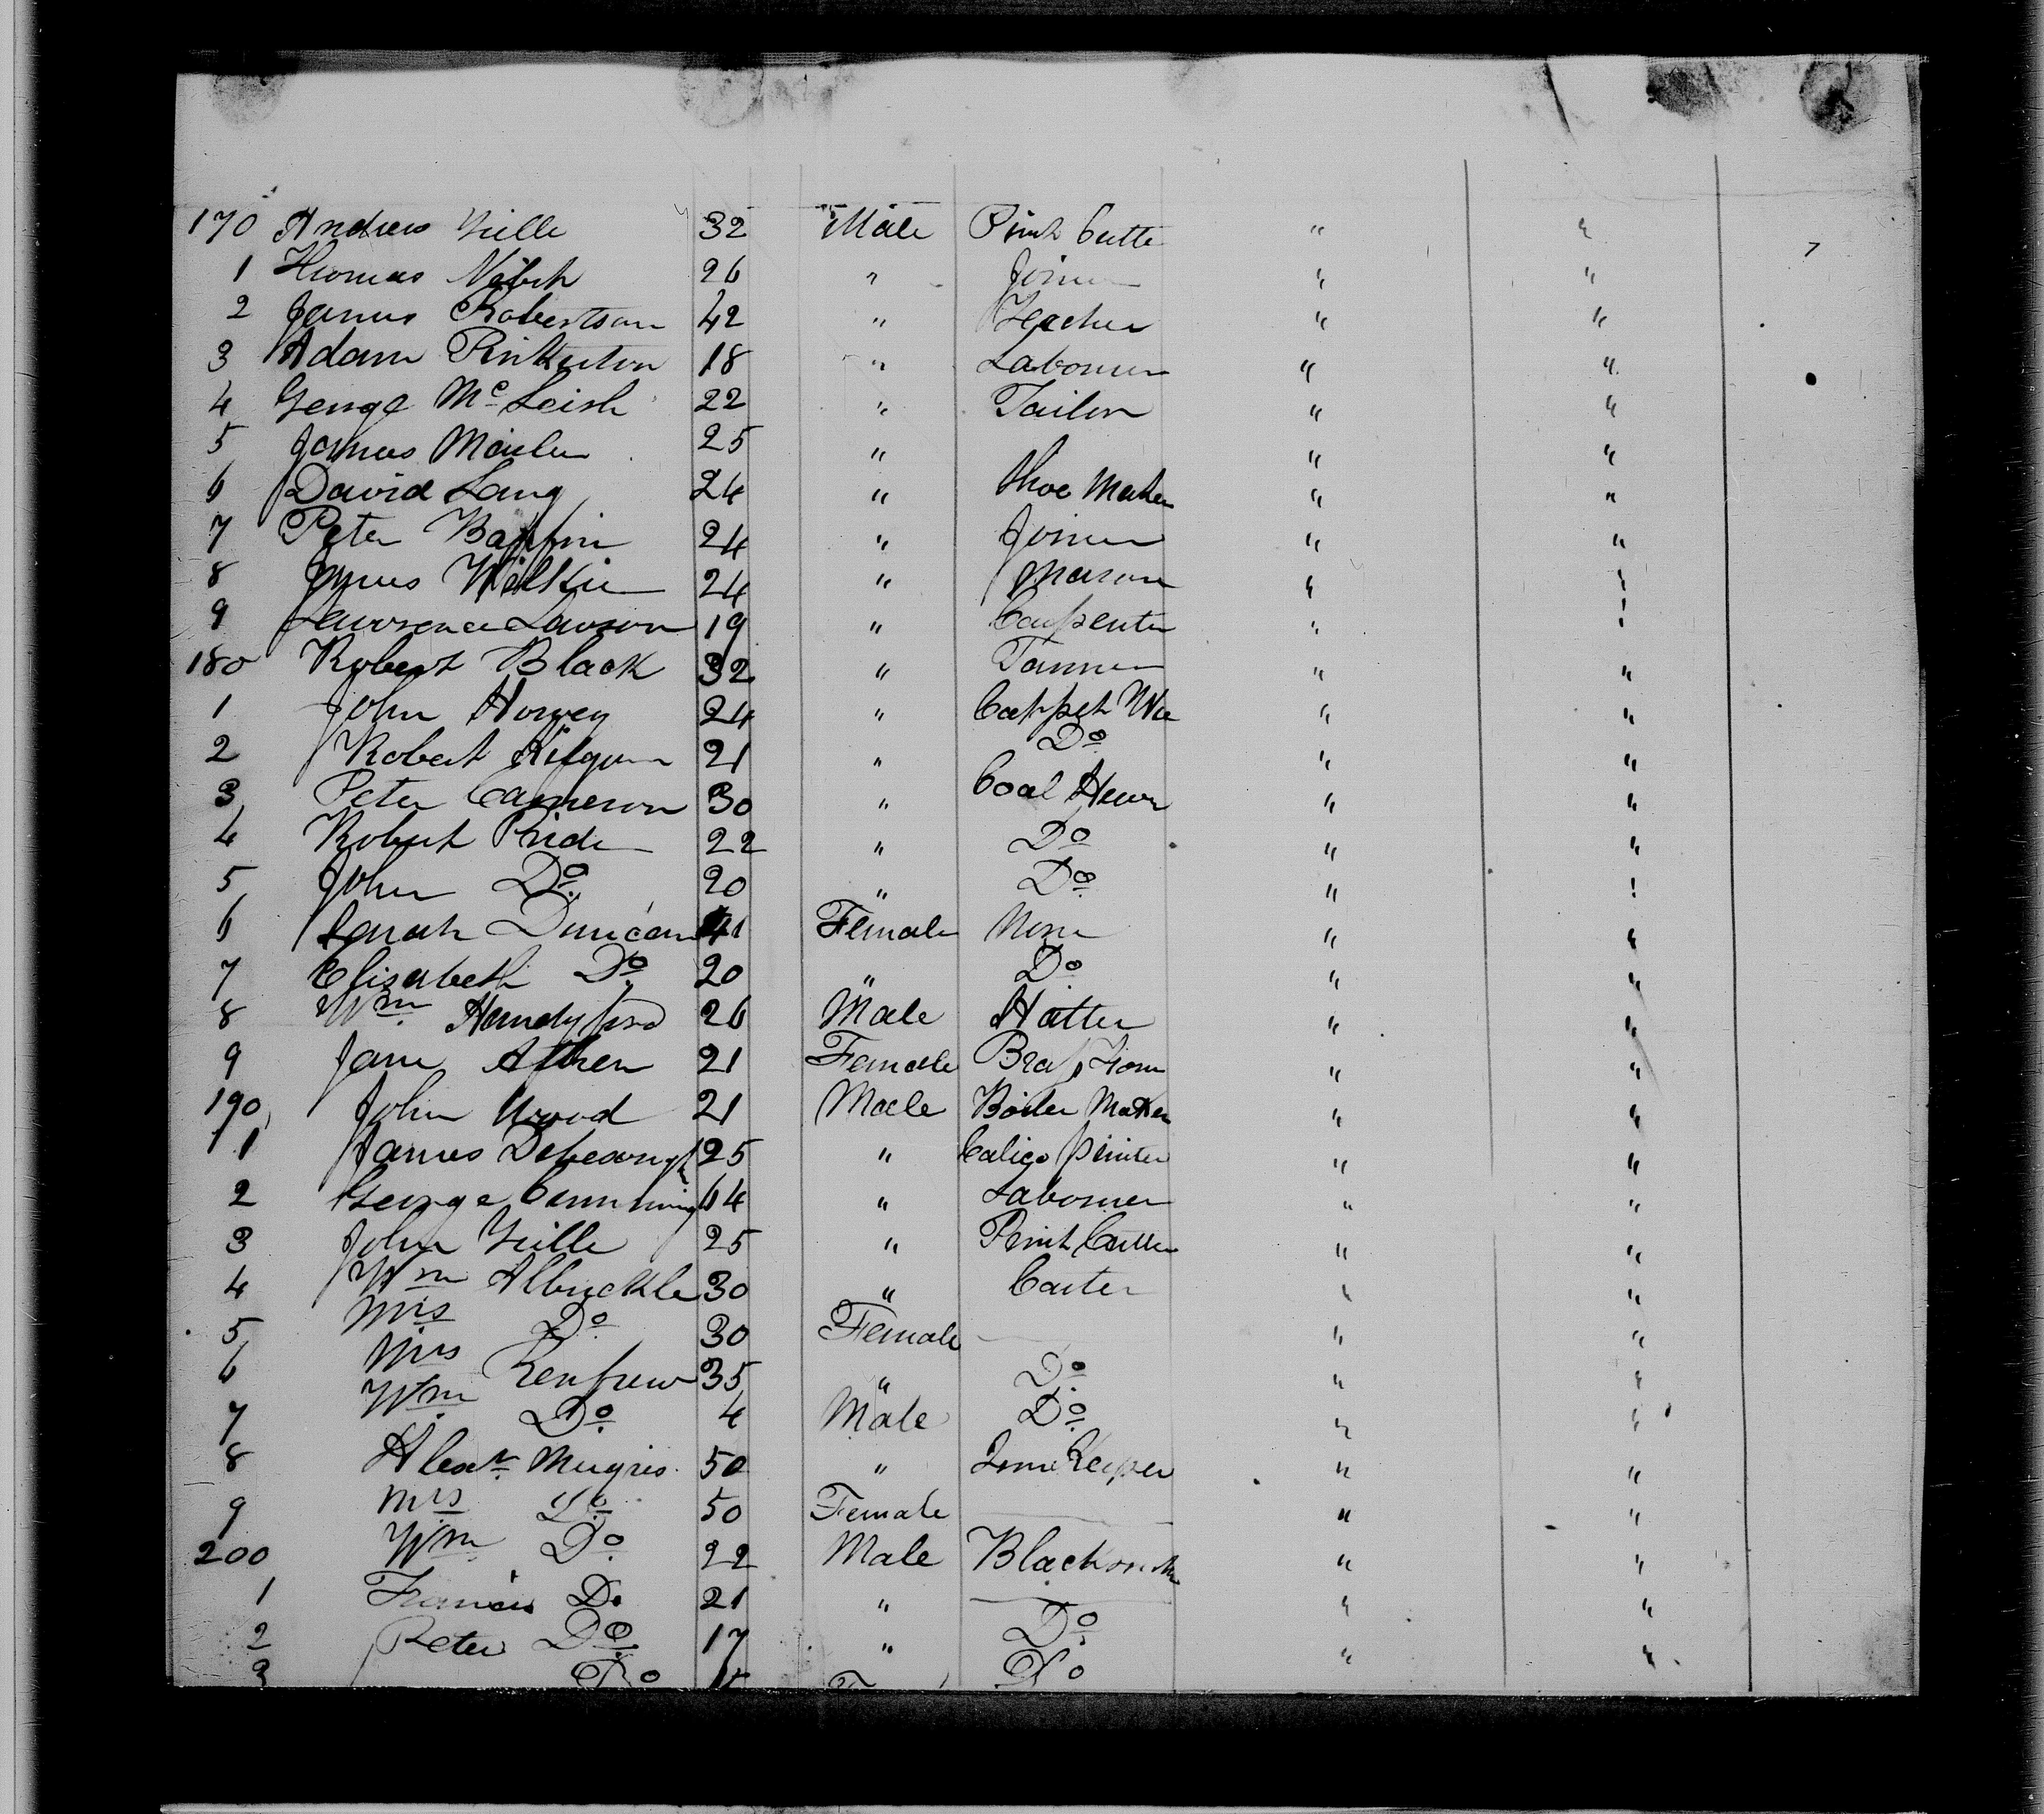 170 Andrew Yuille 32 Male Print Cutte " "
1 Thomas Nesbit 26 " Joiner " "
2 James Robertson 42 " Teacher " "
3 Adam Pinkerton 18 " Labourer " "
4 George Mc Leish 22 " Tailor " "
5 James 25 " " "
6 David Lang 24 " Shoe Maker " "
7 Peter 24 " Joiner " "
8 James Wilkie 24 " Mason " "
9 Lawrence Lawson 19 " Carpenter " "
180 Robert Black 32 " Tanner " "
1 John Harvey 24 " Carppet Wea " "
2 Robert 21 " Do " "
3 Peter Cameron 30 " Coal Hewr " "
4 Robert Pride 22 " Do " "
5 John Do 20 " Do " "
6 Sarah Duncan 41 Female None " "
7 Elisabeth Do 20 " Do " "
8 Wm Handyford 26 Male Hatter " "
9 Jane 21 Female " "
190 John Wood 21 Male Boiler Maker " "
1 James 25 " Calico printer " "
2 George Cumming 64 " Labourer " "
3 John Yuille 25 " Print Cutter " "
4 Wm Albuckle 30 " Carter " "
5 Mrs Do 30 Female " "
6 Mrs Renfrew 35 " Do " "
7 Wm Do 4 Male Do " "
8 Alexr 50 " Inn Keeper " "
9 Mrs Do 50 Female " "
200 Wm Do 22 Male Blacksmith " "
1 Francis Do 21 " " "
2 Peter Do 17 " Do " "
3 Do Do